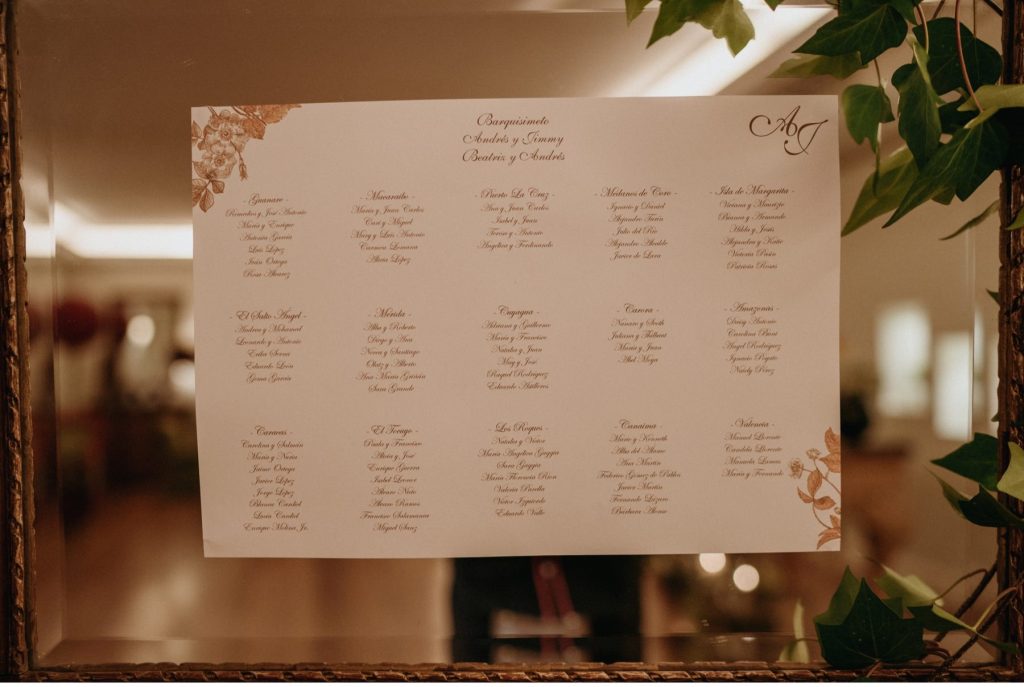 Barquisimeto
Andrés y Jimmy
Beatriz y Andrés
AJ
- Guanare -
Remedios y José Antonio
María y Enrique
Antonia García
Luis López
Iván Ortega
Rosa Alvarez
- Maracaibo -
María y Juan Carlos
Cari y Miguel
Mary y Luis Antonio
Carmen Lomana
Alicia López
- Puerto La Cruz -
Ana y Juan Carlos
Isabel y Juan
Teresa y Antonio
Angelica y Ferdinando
- Médanos de Coro -
Ignacio y Daniel
Alejandro Turín
Julio del Río
Alejandro Alcalde
Javier de Lara
- Isla de Margarita -
Viviana y Maurizio
Bianca y Armando
Hilda y Jesús
Alejandra y Katie
Victoria
Patricia Rosas
- El Salto Angel -
Andrea y Mohamed
Leonardo y Antonio
Erika Serna
Eduardo León
Gema García
- Mérida -
Alba y Roberto
Diego y Ana
Norea y Santiago
Olatz y Alberto
Ana María
Sara Grande
- Cuyagua -
Adriana y Guillermo
María y Francisco
Natalia y Juan
May y José
Raquel Rodríguez
Eduardo
- Carora -
Nanaro y Scoth
Juliana y
María y Juan
Abel Moya
- Amazonas -
Deisy Antonio
Carolina
Angel Rodríguez
Ignacio
Naidy Pérez
- Caracas -
Carolina y Salmán
María y Nuria
Jaime Ortega
Javier López
Jorge López
Blanca Candiel
Lucía Candiel
Enrique Molina Jr.
- El Tocuyo -
Paula y Francisco
Alicia y José
Enrique Guerra
Isabel
Alvaro Nieto
Alvaro Ramos
Francisco Salamanca
Miguel Sanz
- Los Roques -
Natalia y Victor
María Angelica Guyppa
Sara Guyppa
María Florencia Rion
Valeria Parella
Victor Izquierdo
Eduardo Valle
- Canaima -
Mario y Kenneth
Alba del Alamo
Ana Martín
Federico Gómez de Pablos
Javier Martín
Fernando Lázaro
Bárbara Alonso
- Valencia -
Manuel Llorente
Candela Llorente
Manuela Lamas
María y Fernando